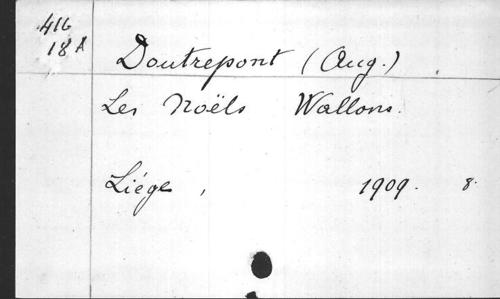 416
18 A
Doutrepont (Aug.)
Les Noëls Wallons.
Liége, 1909. 8.